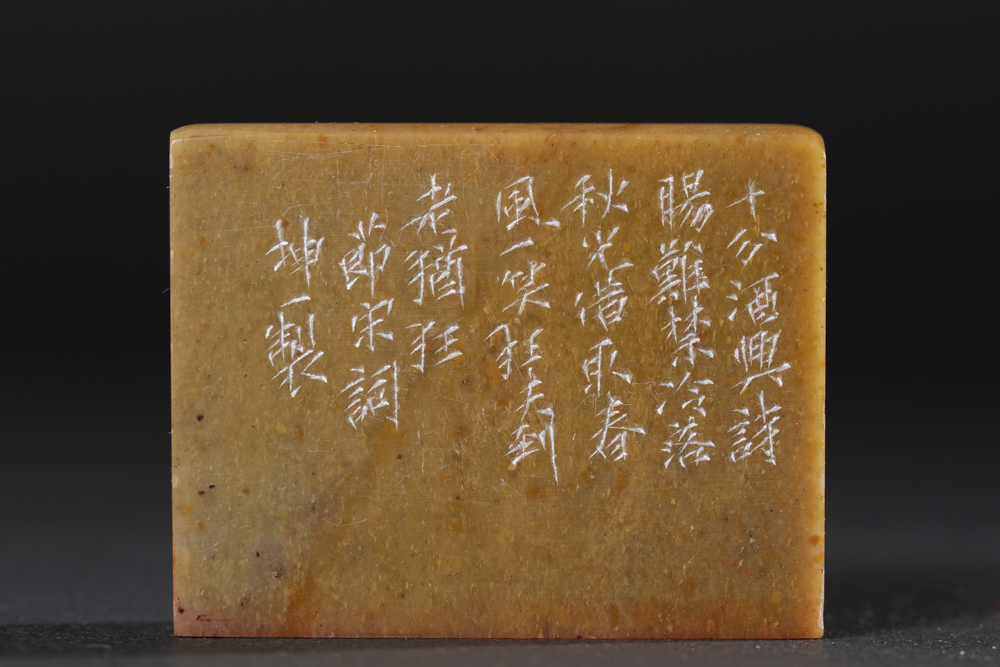 十分酒興詩
腸難禁冷落
秋光借取春
風一笑狂夫到
老猶狂
節宋詞
坤一製